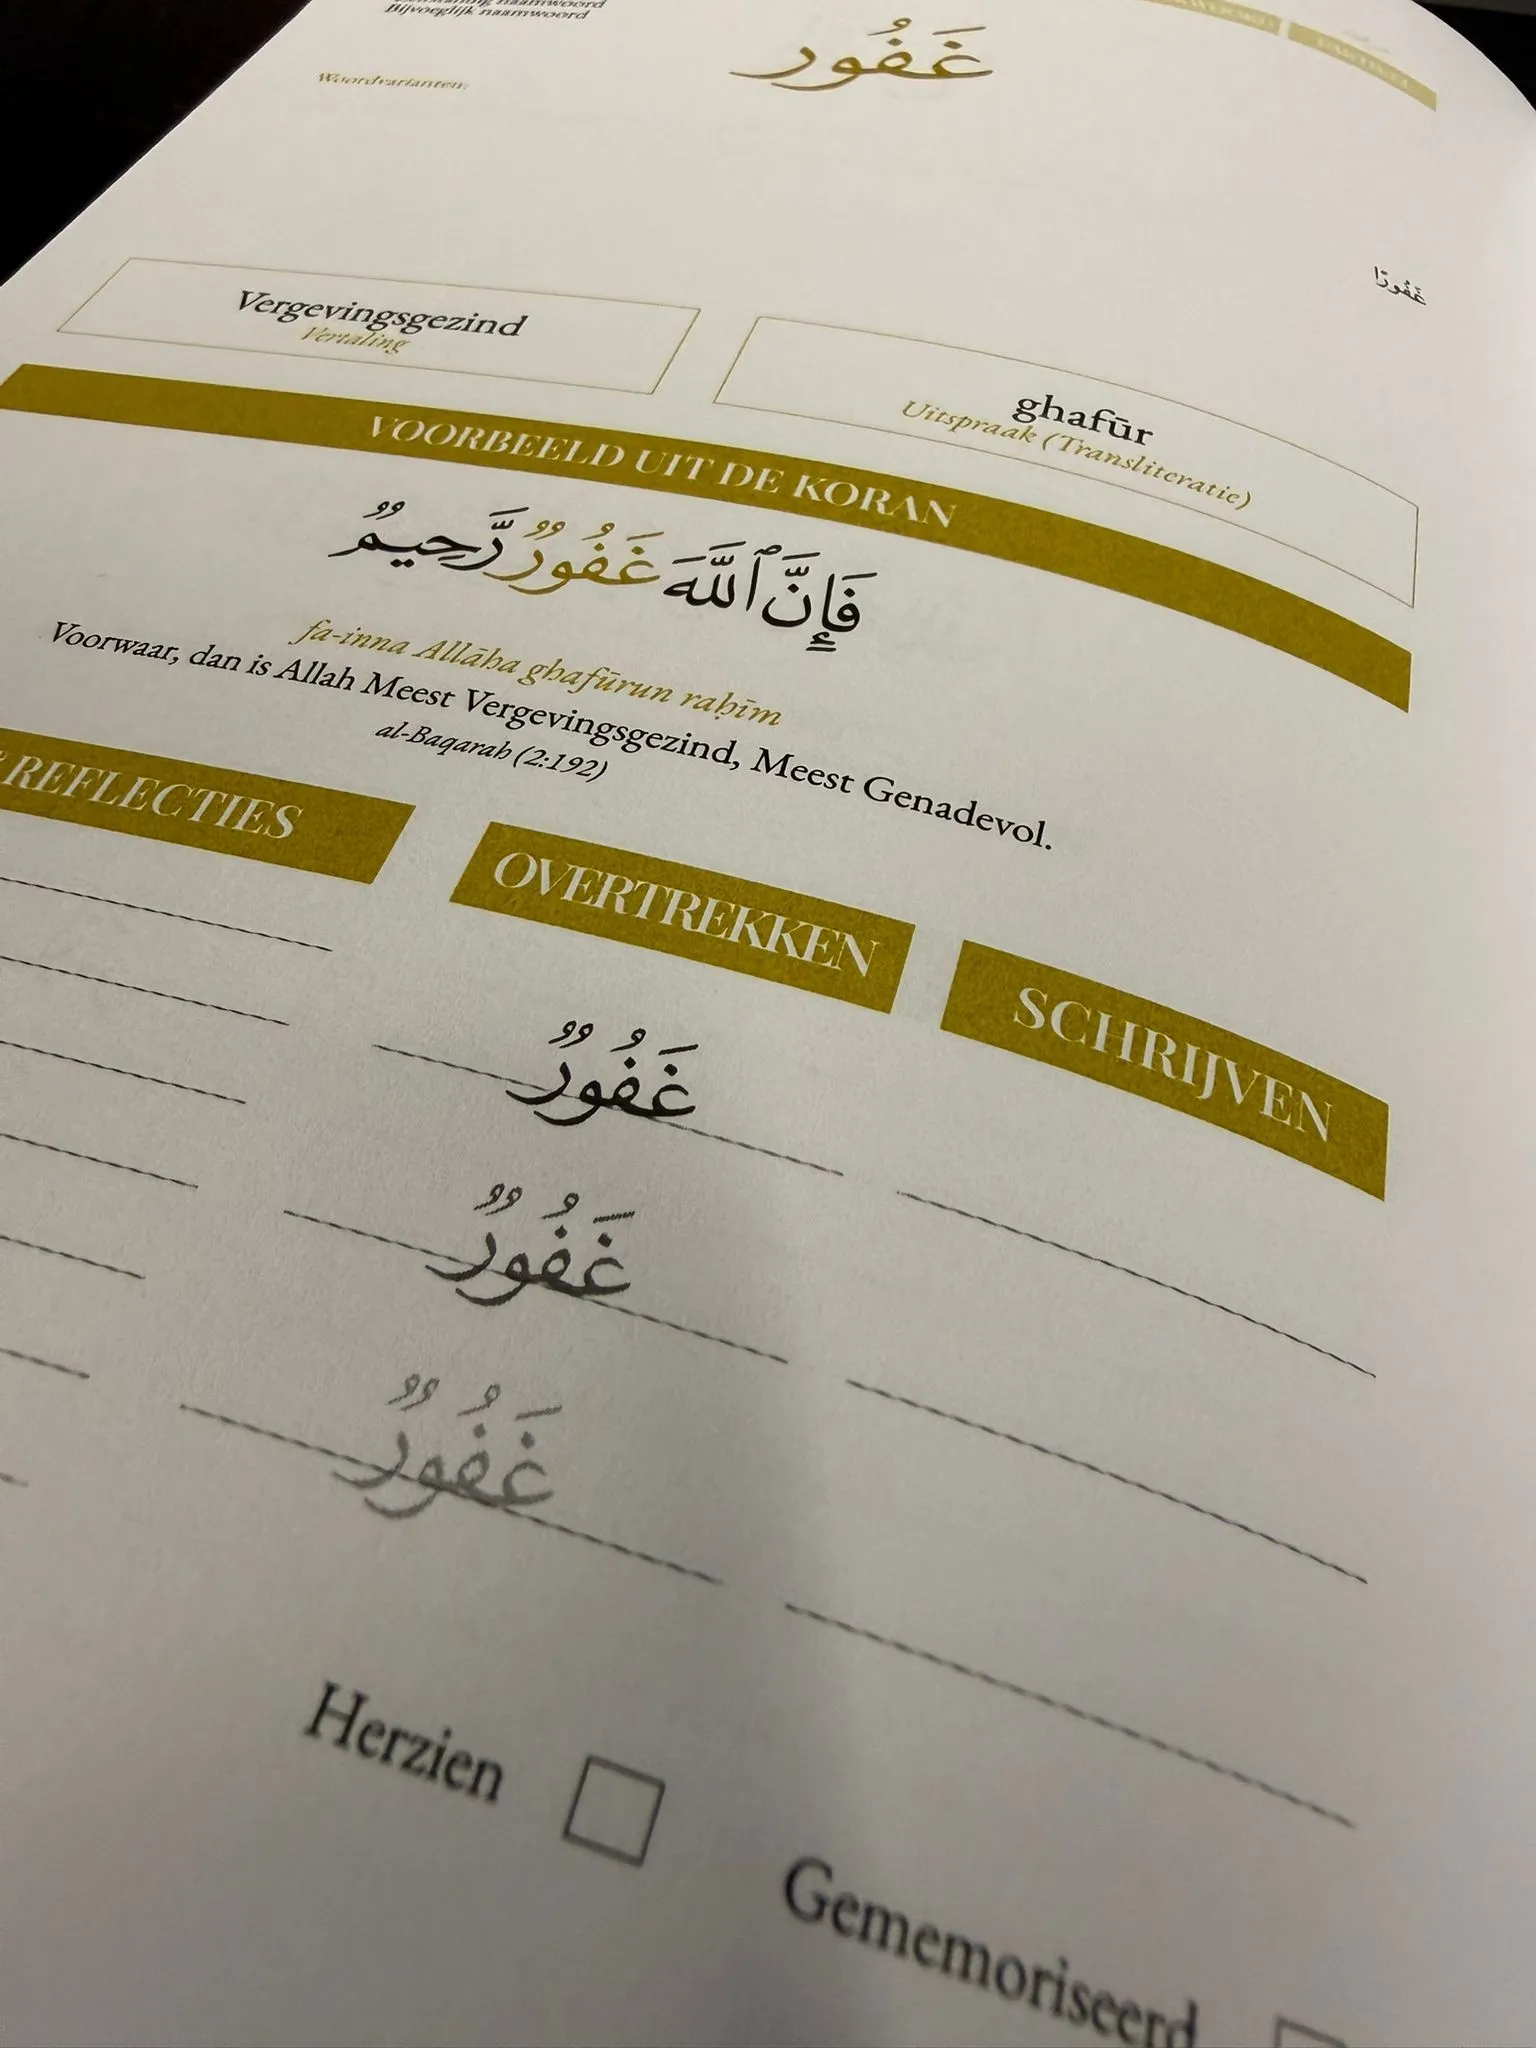 Bijvoeglijk naamwoord
غَفُور
Woordvarianten:
غَفُورًا
Vergevingsgezind
Vertaling
ghafūr
Uitspraak (Transliteratie)
VOORBEELD UIT DE KORAN
فَإِنَّ ٱللَّهَ غَفُورٌ رَّحِيمٌ
fa-inna Allāha ghafūrun raḥīm
Voorwaar, dan is Allah Meest Vergevingsgezind, Meest Genadevol.
al-Baqarah (2:192)
REFLECTIES
OVERTREKKEN
SCHRIJVEN
غَفُورٌ
غَفُورٌ
غَفُورٌ
Herzien
Gememoriseerd